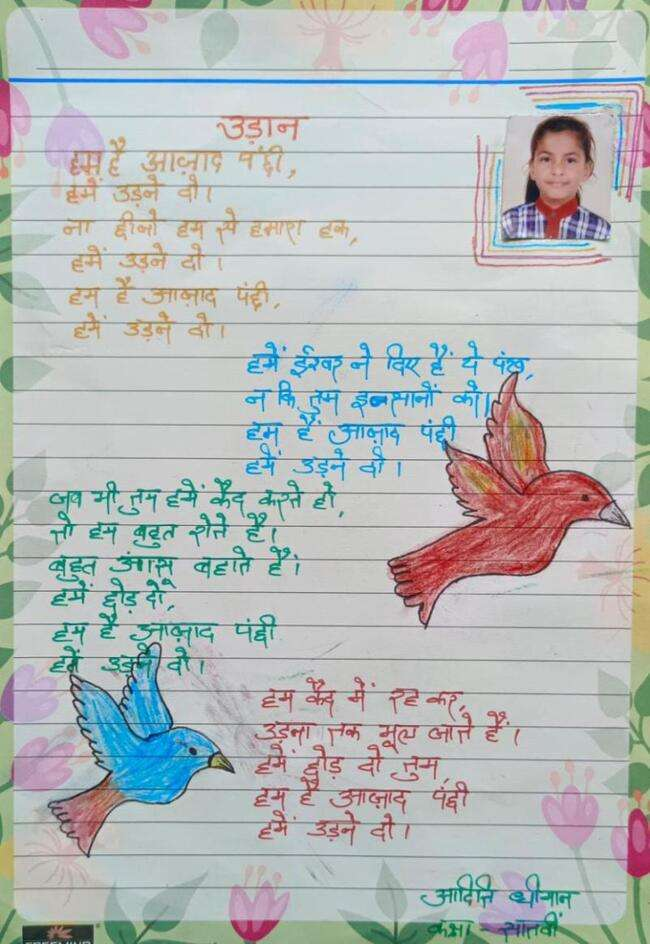 उड़ान
हम है आज़ाद पंछी,
हमें उड़ने दो।
ना छीनो हम से हमारा हक,
हमें उड़ने दो।
हम हैं आज़ाद पंछी,
हमें उड़ने दो।
हमें ईश्वर ने दिए हैं ये पंख,
न कि तुम इनसानों को।
हम हैं आज़ाद पंछी
हमें उड़ने दो।
जब भी तुम हमें कैद करते हो,
तो हम बहुत रोते है।
बहुत आंसू बहाते हैं।
हमें छोड़ दो,
हम है आज़ाद पंछी
हमें उड़ने दो।
हम कैद में रह कर,
उड़ना तक भूल जाते हैं।
हमें छोड़ दो तुम,
हम है आज़ाद पंछी
हमें उड़ने दो।
आदिति
कक्षा - सातवीं